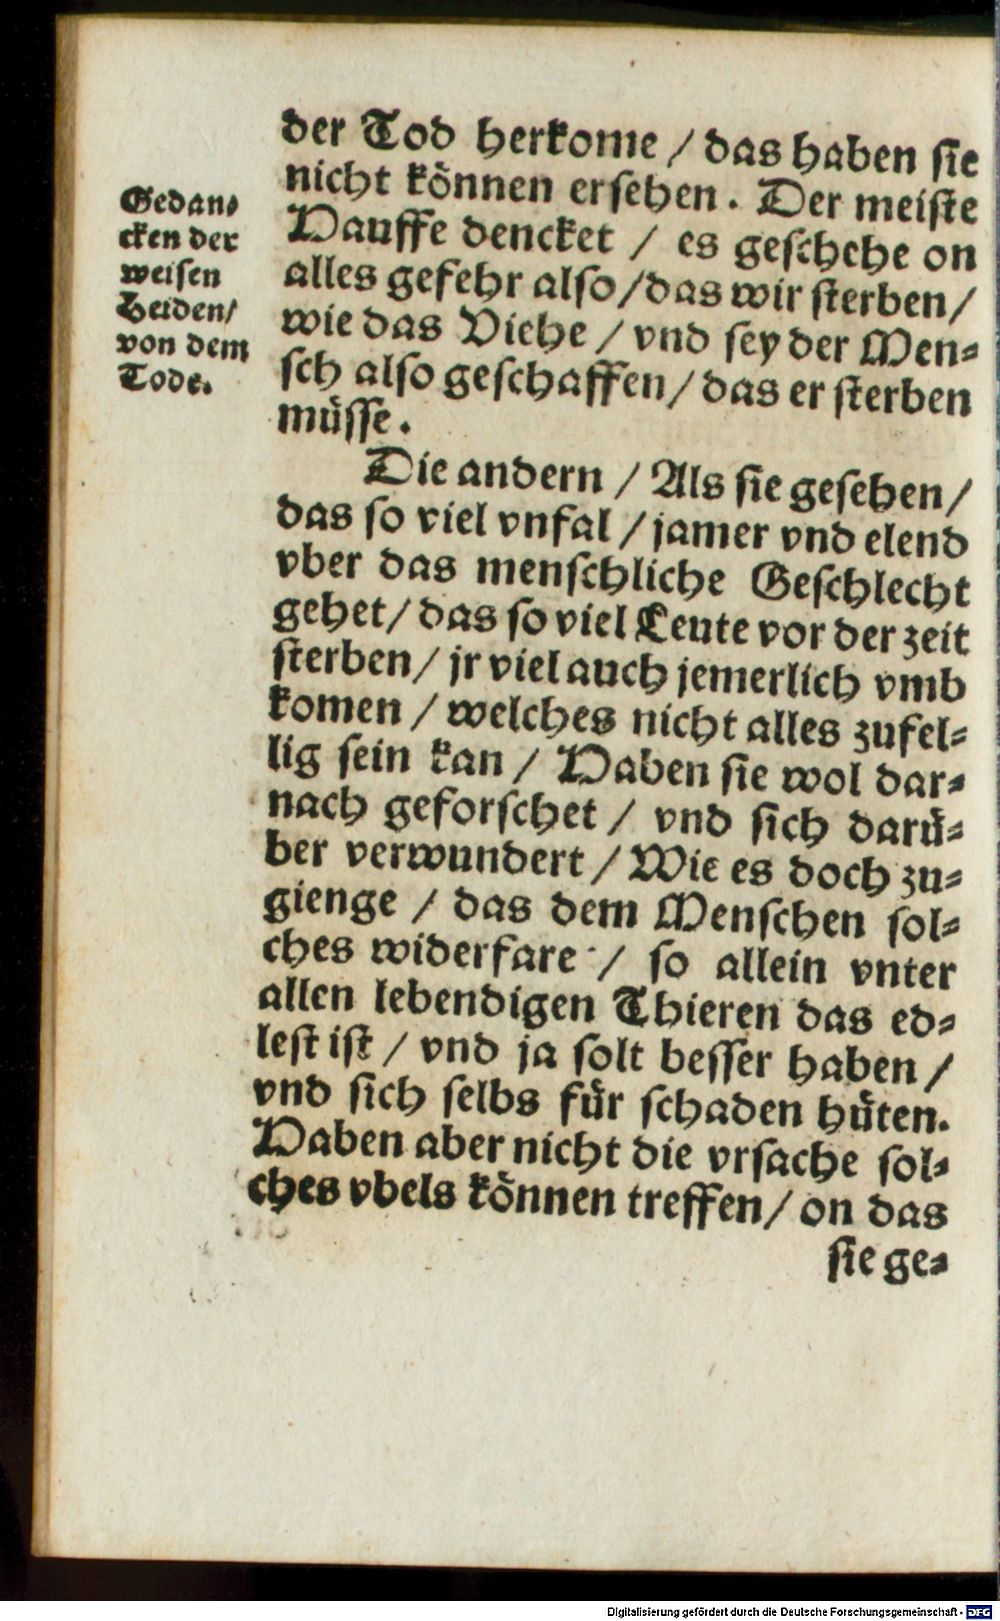 Gedan-
cken der
weisen
Heiden/
von dem
Tode.
der Tod herkome / das haben sie
nicht können ersehen. Der meiste
Hauffe dencket / es geschehe on
alles gefehr also/das wir sterben/
wie das Viehe / vnd sey der Men-
sch also geschaffen/ das er sterben
müsse.
Die andern / Als sie gesehen/
das so viel vnfal / jamer vnd elend
vber das menschliche Geschlecht
gehet/ das so viel Leute vor der zeit
sterben/ jr viel auch jemerlich vmb
komen / welches nicht alles zufel-
lig sein kan / Haben sie wol dar-
nach geforschet / vnd sich darü-
ber verwundert / Wie es doch zu-
gienge / das dem Menschen sol-
ches widerfare / so allein vnter
allen lebendigen Thieren das ed-
lest ist / vnd ja solt besser haben /
vnd sich selbs für schaden hüten.
Haben aber nicht die vrsache sol-
ches vbels können treffen/ on das
sie ge-
Digitalisierung gefördert durch die Deutsche Forschungsgemeinschaft - DFG